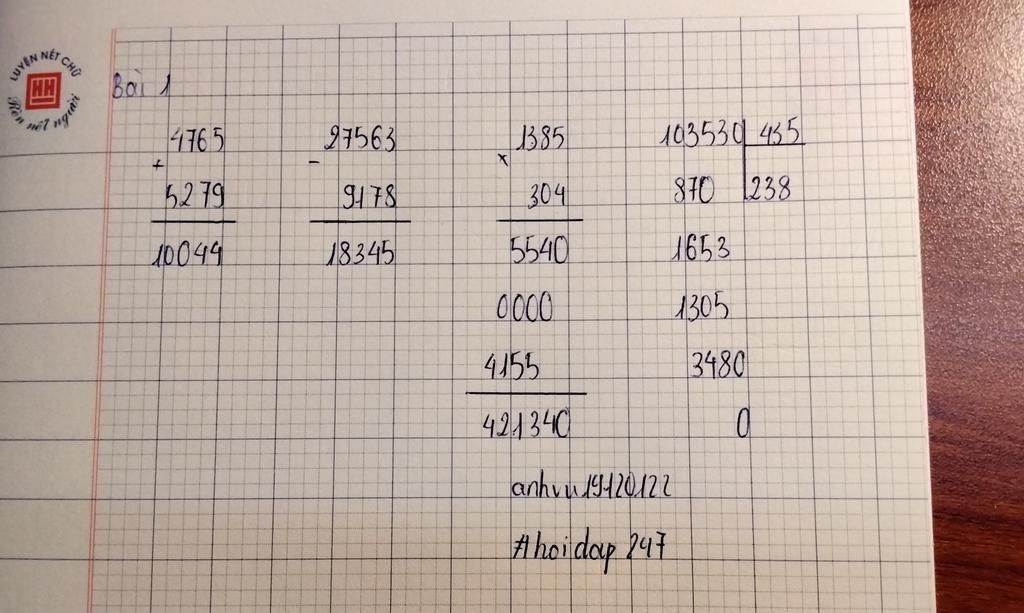 LUYỆN NÉT CHỮ
HH
Rèn nết người
Bài 1
4765
+
5279
10044
27563
-
9178
18345
1385
x
304
5540
0000
4155
421340
103530 435
870 238
1653
1305
3480
0
anhvu19120122
#hoidap247